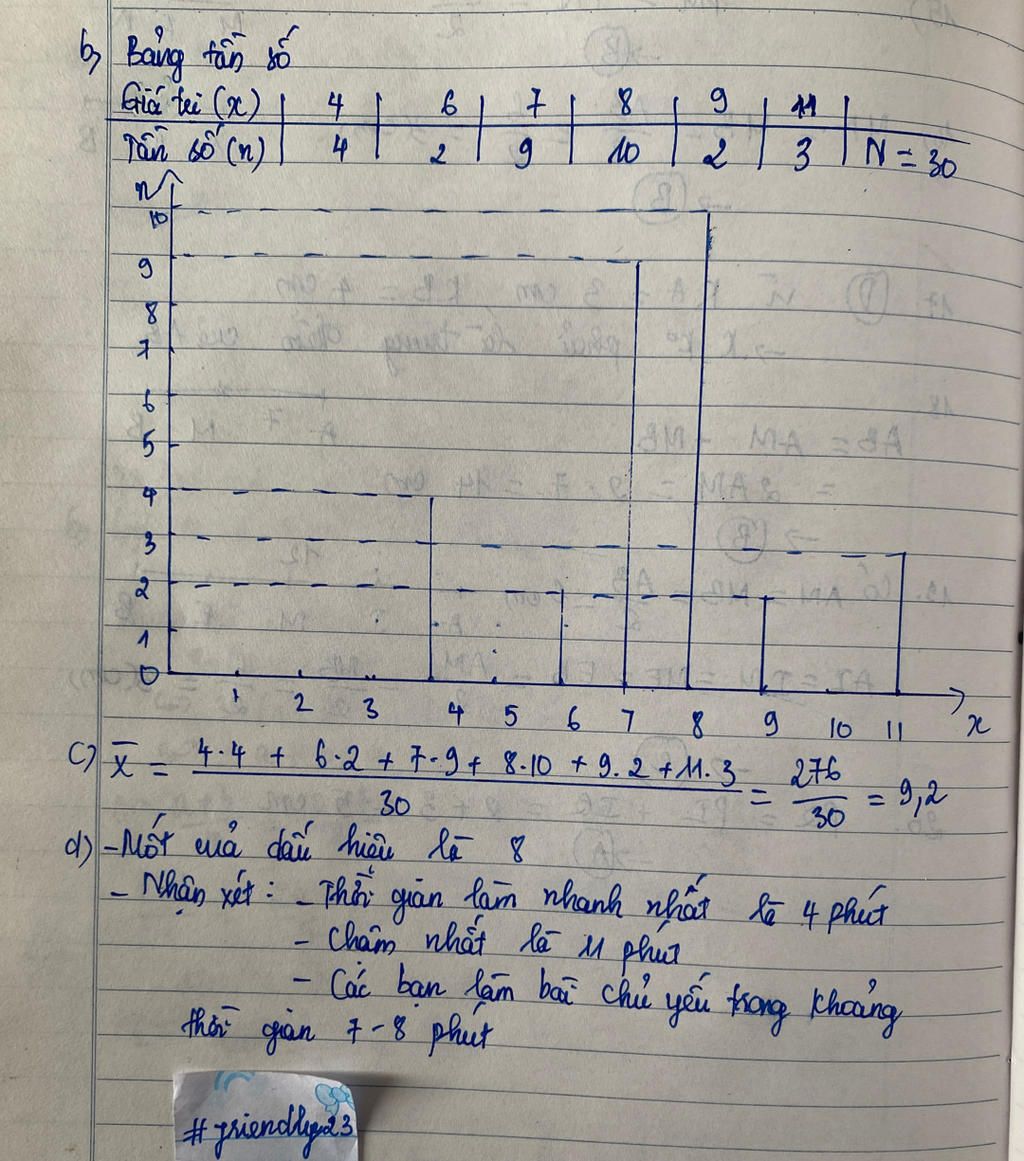 b) Bảng tần số
Giá trị (x) | 4 | 6 | 7 | 8 | 9 | 11 |
Tần số (n) | 4 | 2 | 9 | 10 | 2 | 3 | N = 30
n
10
9
8
7
6
5
4
3
2
1
0
1 2 3 4 5 6 7 8 9 10 11 x
c) x̄ = (4·4 + 6·2 + 7·9 + 8·10 + 9·2 + 11·3)/30 = 276/30 = 9,2
d) - Mốt của dấu hiệu là 8
- Nhận xét: - Thời gian làm nhanh nhất là 4 phút
- Chậm nhất là 11 phút
- Các bạn làm bài chủ yếu trong khoảng
thời gian 7-8 phút
#friendly23